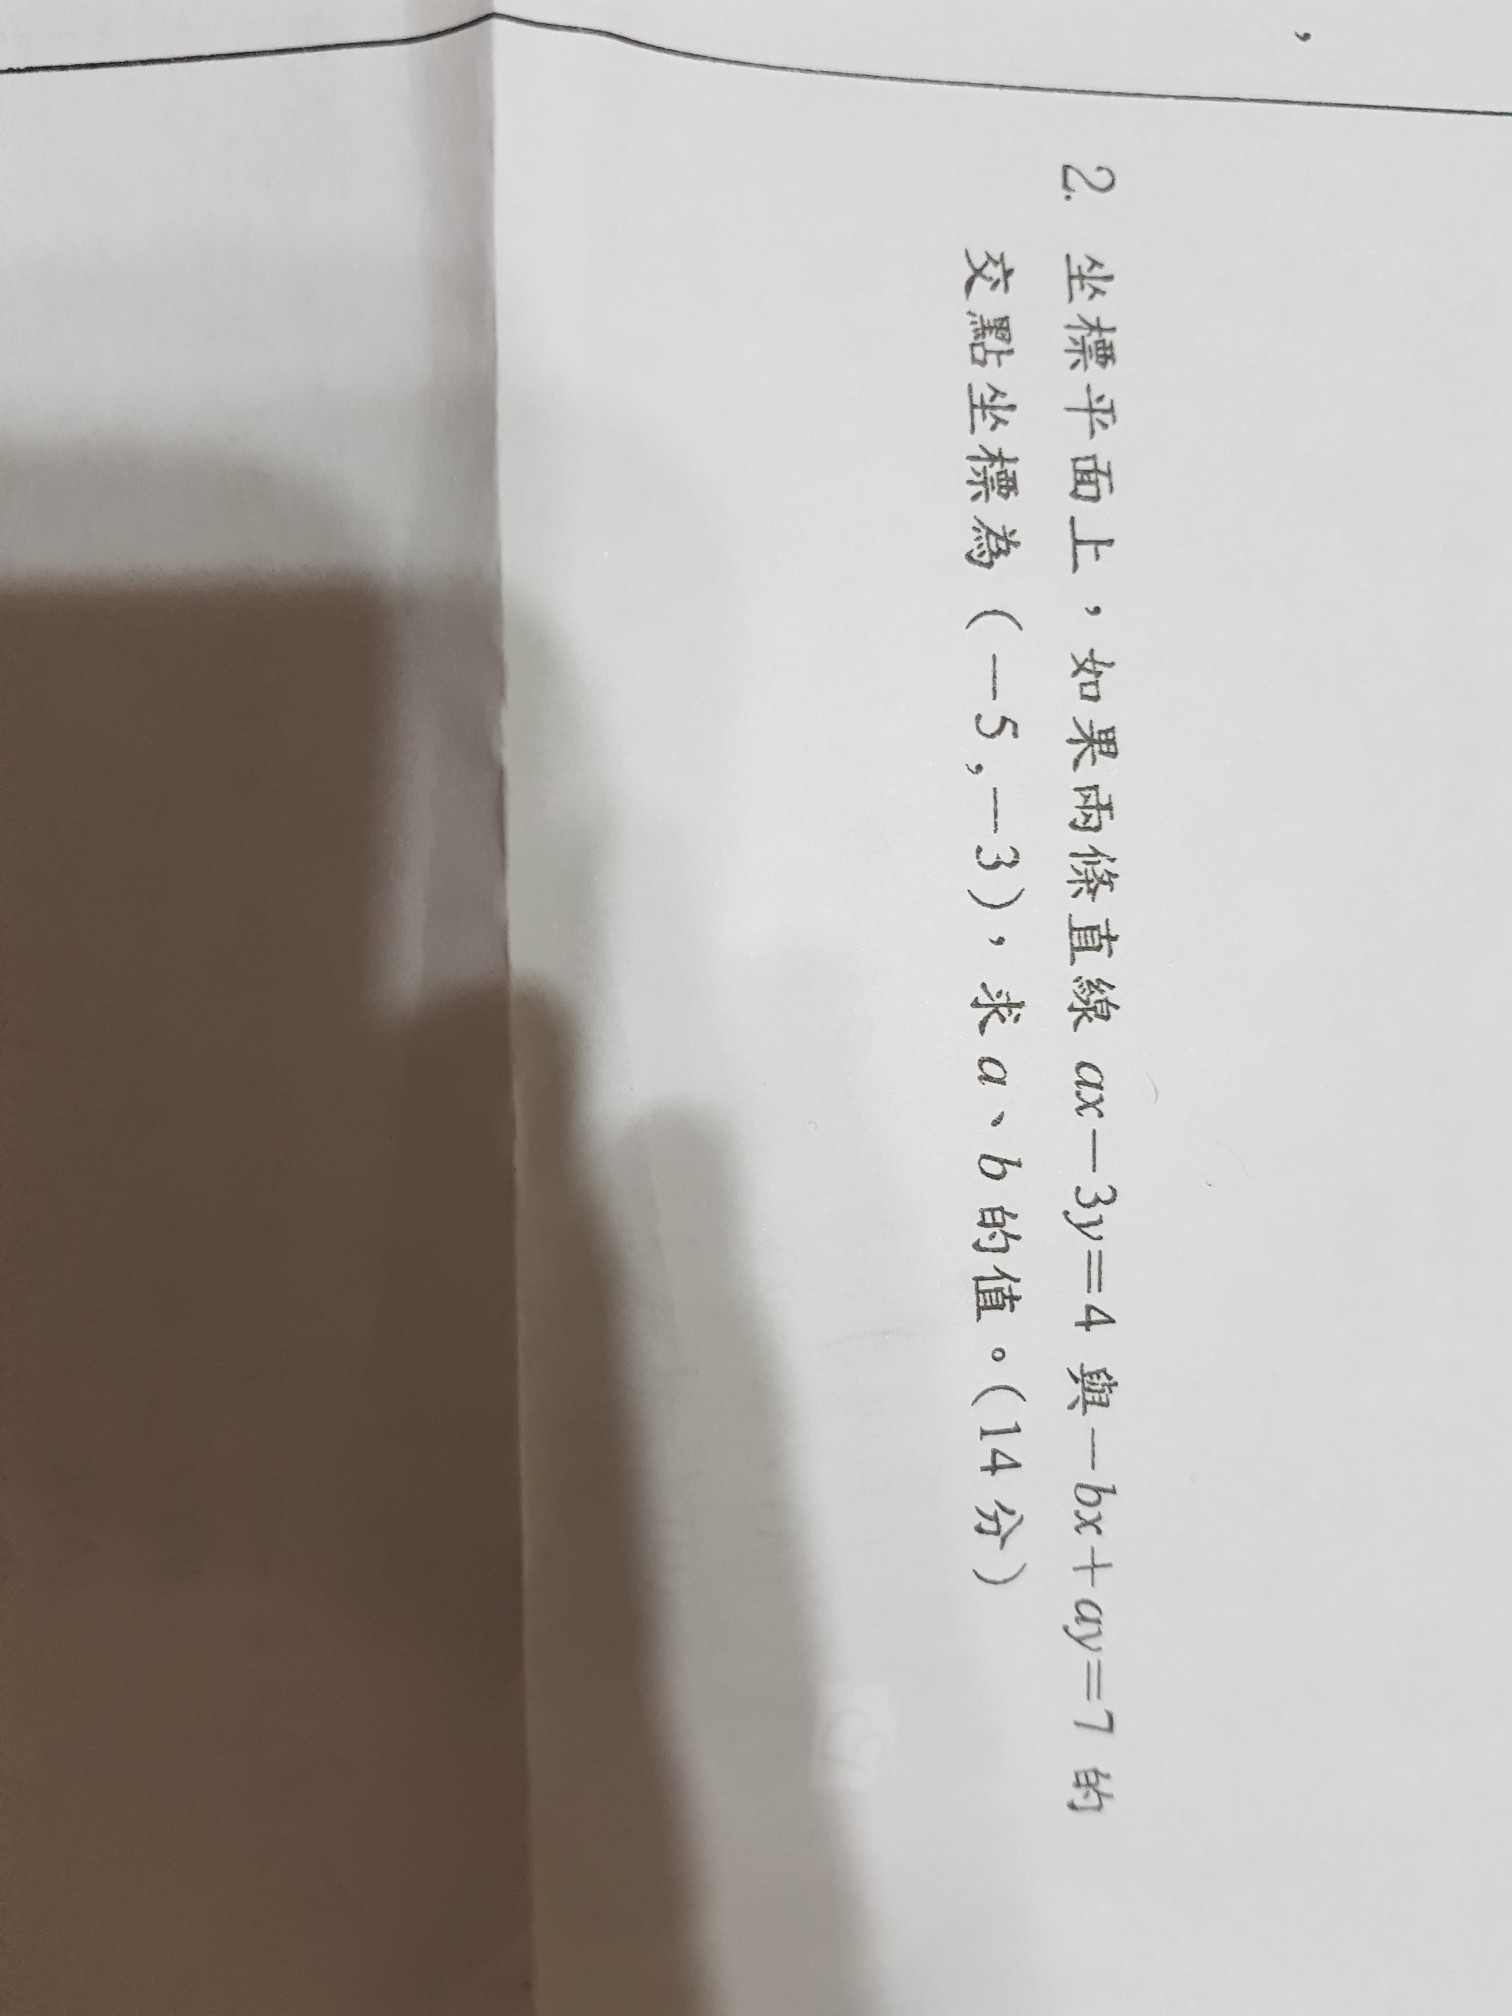 ，
2. 坐標平面上，如果兩條直線 ax－3y＝4 與－bx＋ay＝7 的
交點坐標為（－5,－3），求 a、b 的值。(14 分)